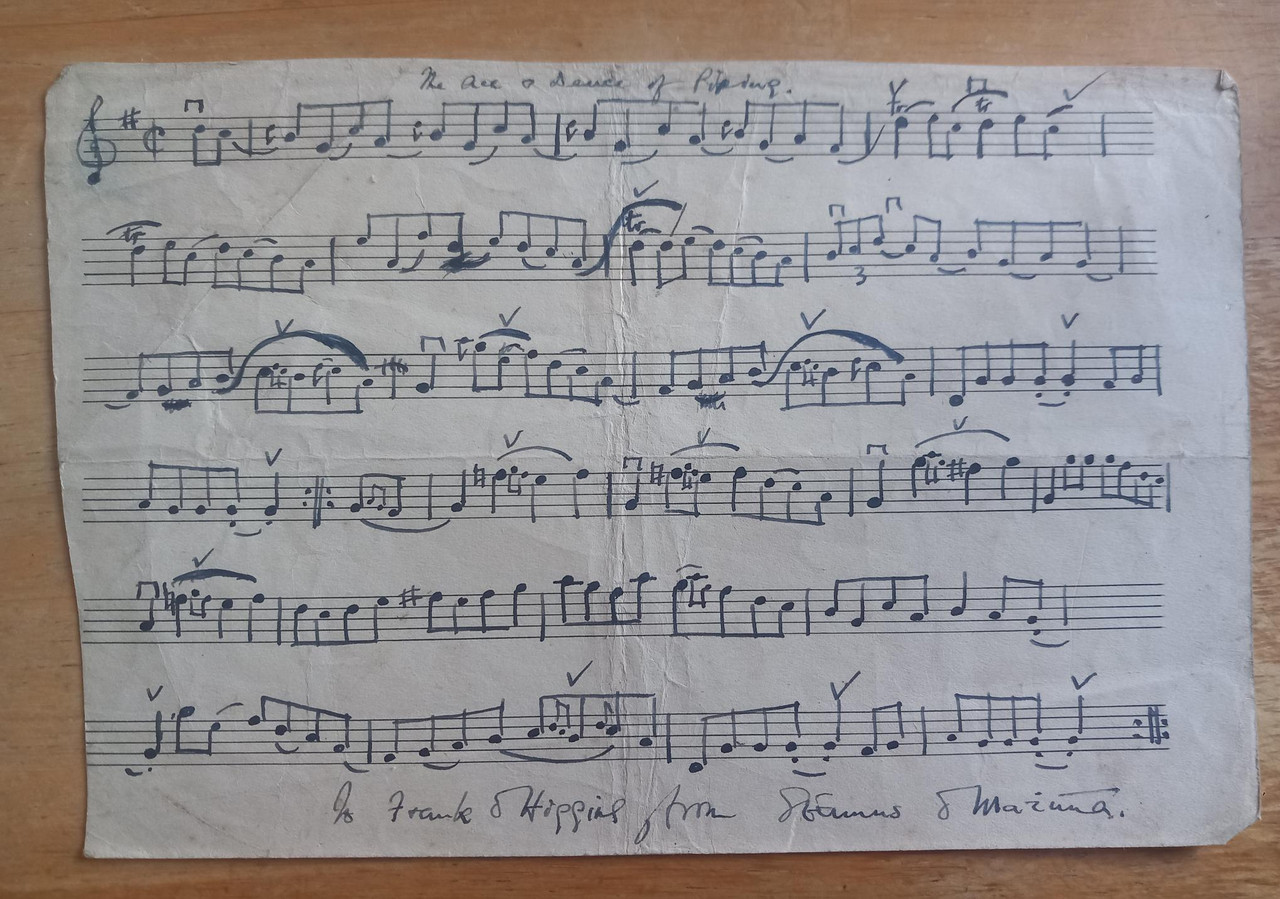 The Ace & Deuce of Piping.
tr tr
tr tr
3
To Frank O'Higgins from Séamus Ó Mathúna.